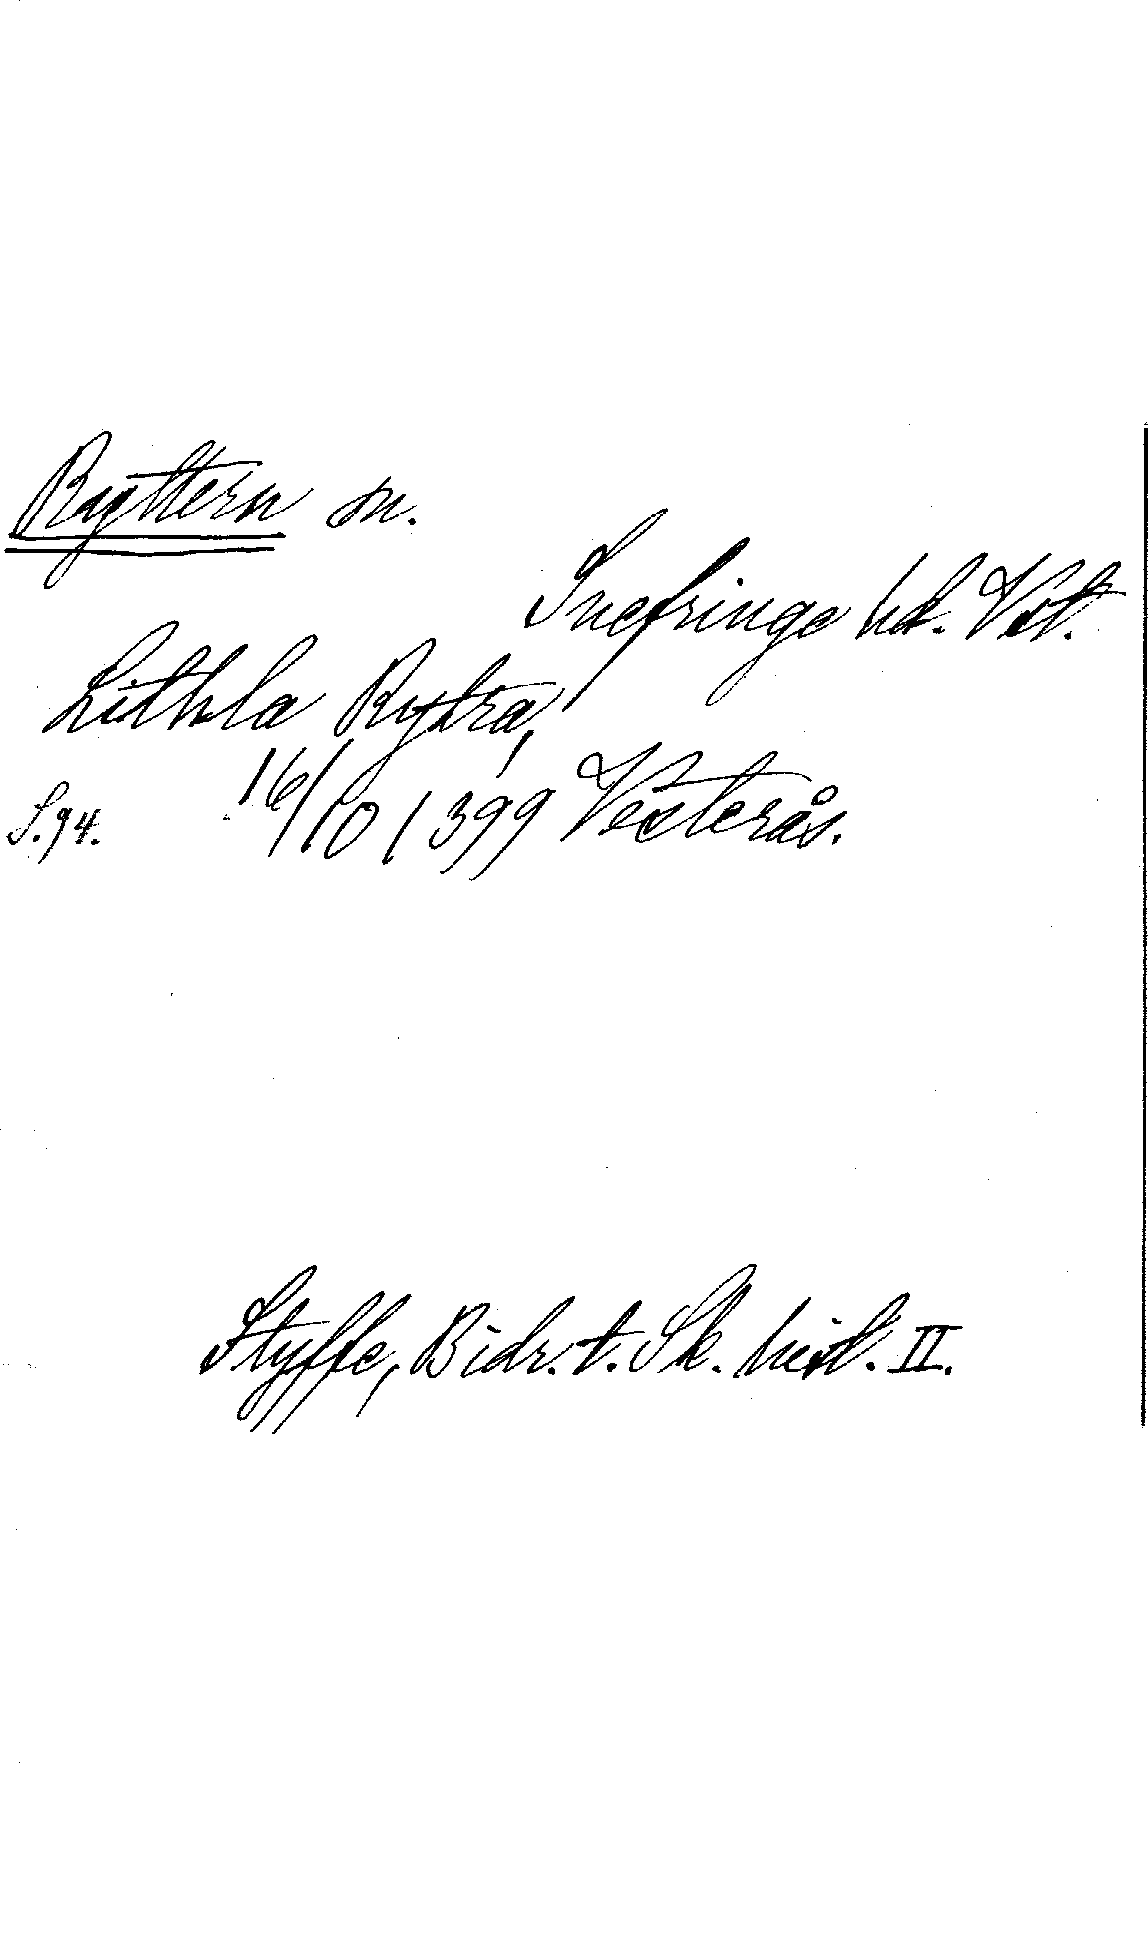 Ryttern sn.
Snefringe hd. Vst.
Lithla Rytra,
16/10 1399 Vesterås.
S. 94.
Styffe, Bidr. t. Sk. hist. II.